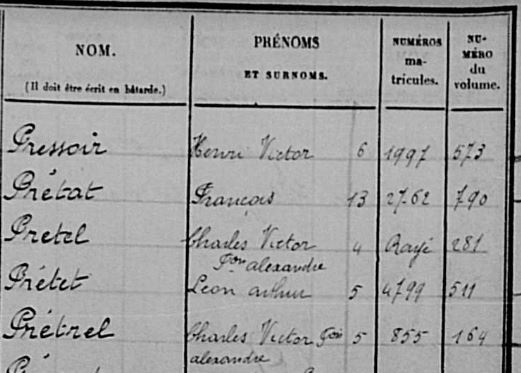 NOM. PRÉNOMS NUMÉROS NU-
ET SURNOMS. ma- MÉRO
(Il doit être écrit en bâtarde.) tricules. du
volume.
Pressoir Henri Victor 6 1997 573
Prétat François 13 2762 790
Pretel Charles Victor 4 Rayé 281
Fois alexandre
Prétet Léon arthur 5 4799 511
Prétrel Charles Victor Fois 5 855 164
alexandre